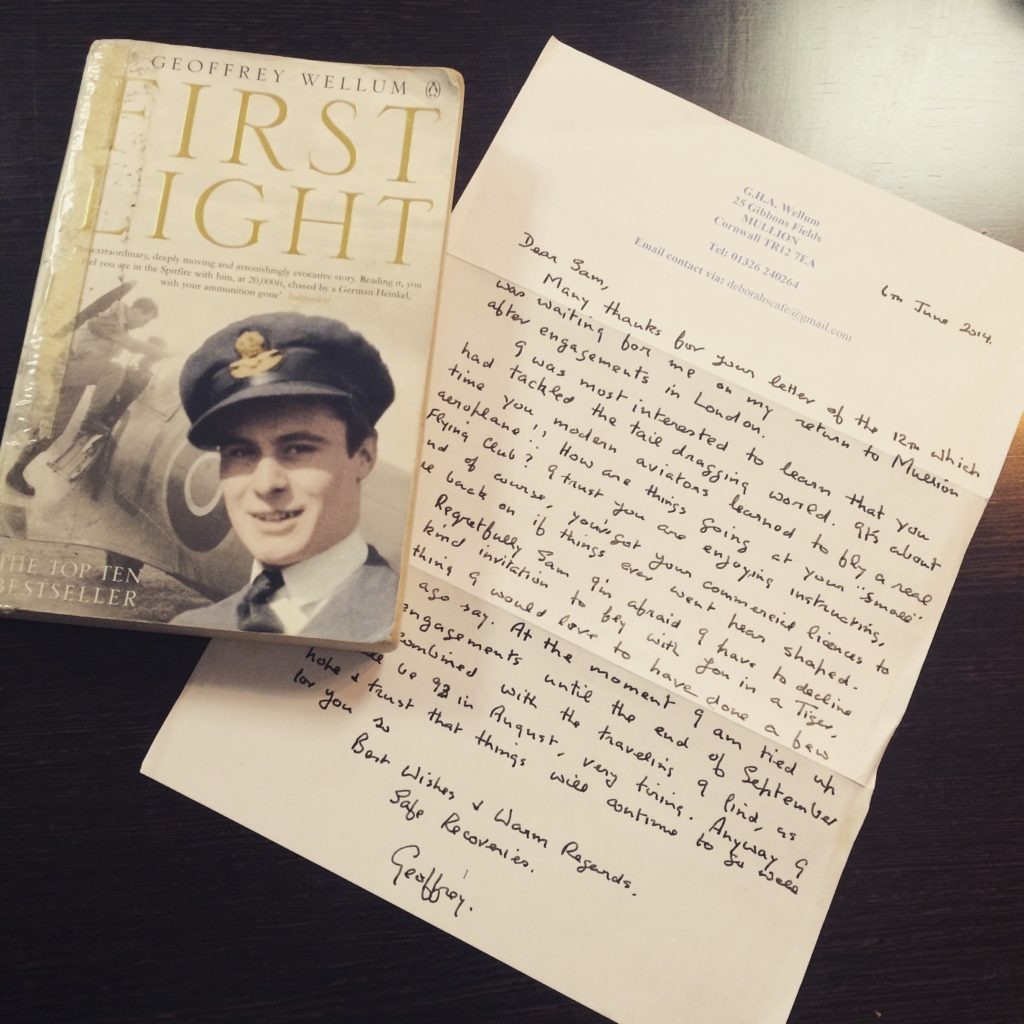 GEOFFREY WELLUM
FIRST
LIGHT
extraordinary, deeply moving and astonishingly evocative story. Reading it, you
you are in the Spitfire with him, at 20,000ft, chased by a German Heinkel,
with your ammunition gone' Independent
THE TOP TEN
BESTSELLER
G.H.A. Wellum
25 Gibbons Fields
MULLION
Cornwall TR12 7EA
Tel: 01326 240264
Email contact via: deborahscafe@gmail.com
June 2014.
Dear Sam,
Many thanks for your letter of the 12th which
was waiting for me on my return to Mullion
after engagements in London.
I was most interested to learn that you
had tackled the tail dragging world. It's about
time you modern aviators learned to fly a real
aeroplane!! How are things going at your "small"
Flying Club? I trust you are enjoying instructing,
and of course, you've got your commercial licences to
back on if things ever went pear shaped.
Regretfully Sam I'm afraid I have to decline
kind invitation to fly with you in a Tiger,
thing I would love to have done a few
ago say. At the moment I am tied up
engagements until the end of September
combined with the traveling I find, as
be 93 in August, very tiring. Anyway I
hope & trust that things will continue to go well
for you so
Best Wishes & Warm Regards.
Safe Recoveries.
Geoffrey.